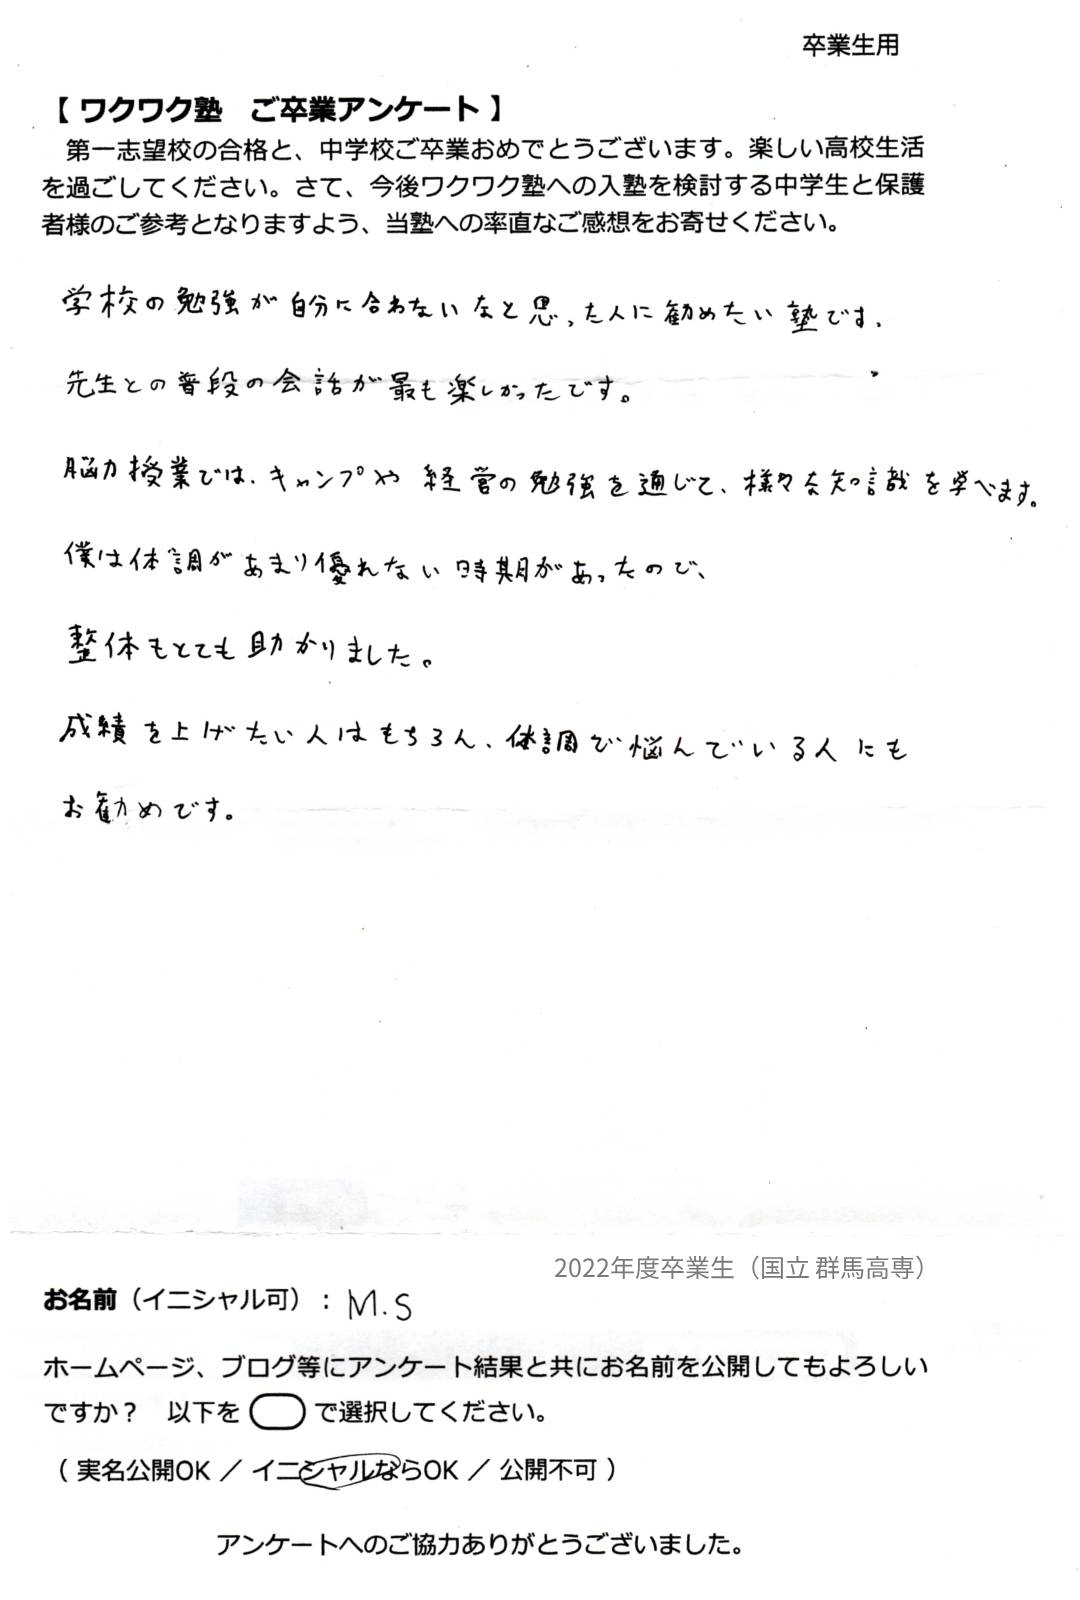 卒業生用
【 ワクワク塾　ご卒業アンケート 】
第一志望校の合格と、中学校ご卒業おめでとうございます。楽しい高校生活
を過ごしてください。さて、今後ワクワク塾への入塾を検討する中学生と保護
者様のご参考となりますよう、当塾への率直なご感想をお寄せください。
学校の勉強が自分に合わないなと思った人に勧めたい塾です。
先生との普段の会話が最も楽しかったです。
脳力授業では、キャンプや経営の勉強を通じて、様々な知識を学べます。
僕は体調があまり優れない時期があったので、
整体もとても助かりました。
成績を上げたい人はもちろん、体調で悩んでいる人にも
お勧めです。
2022年度卒業生（国立 群馬高専）
お名前（イニシャル可）：M.S
ホームページ、ブログ等にアンケート結果と共にお名前を公開してもよろしい
ですか？　以下を　　で選択してください。
（ 実名公開OK ／ イニシャルならOK ／ 公開不可 ）
アンケートへのご協力ありがとうございました。